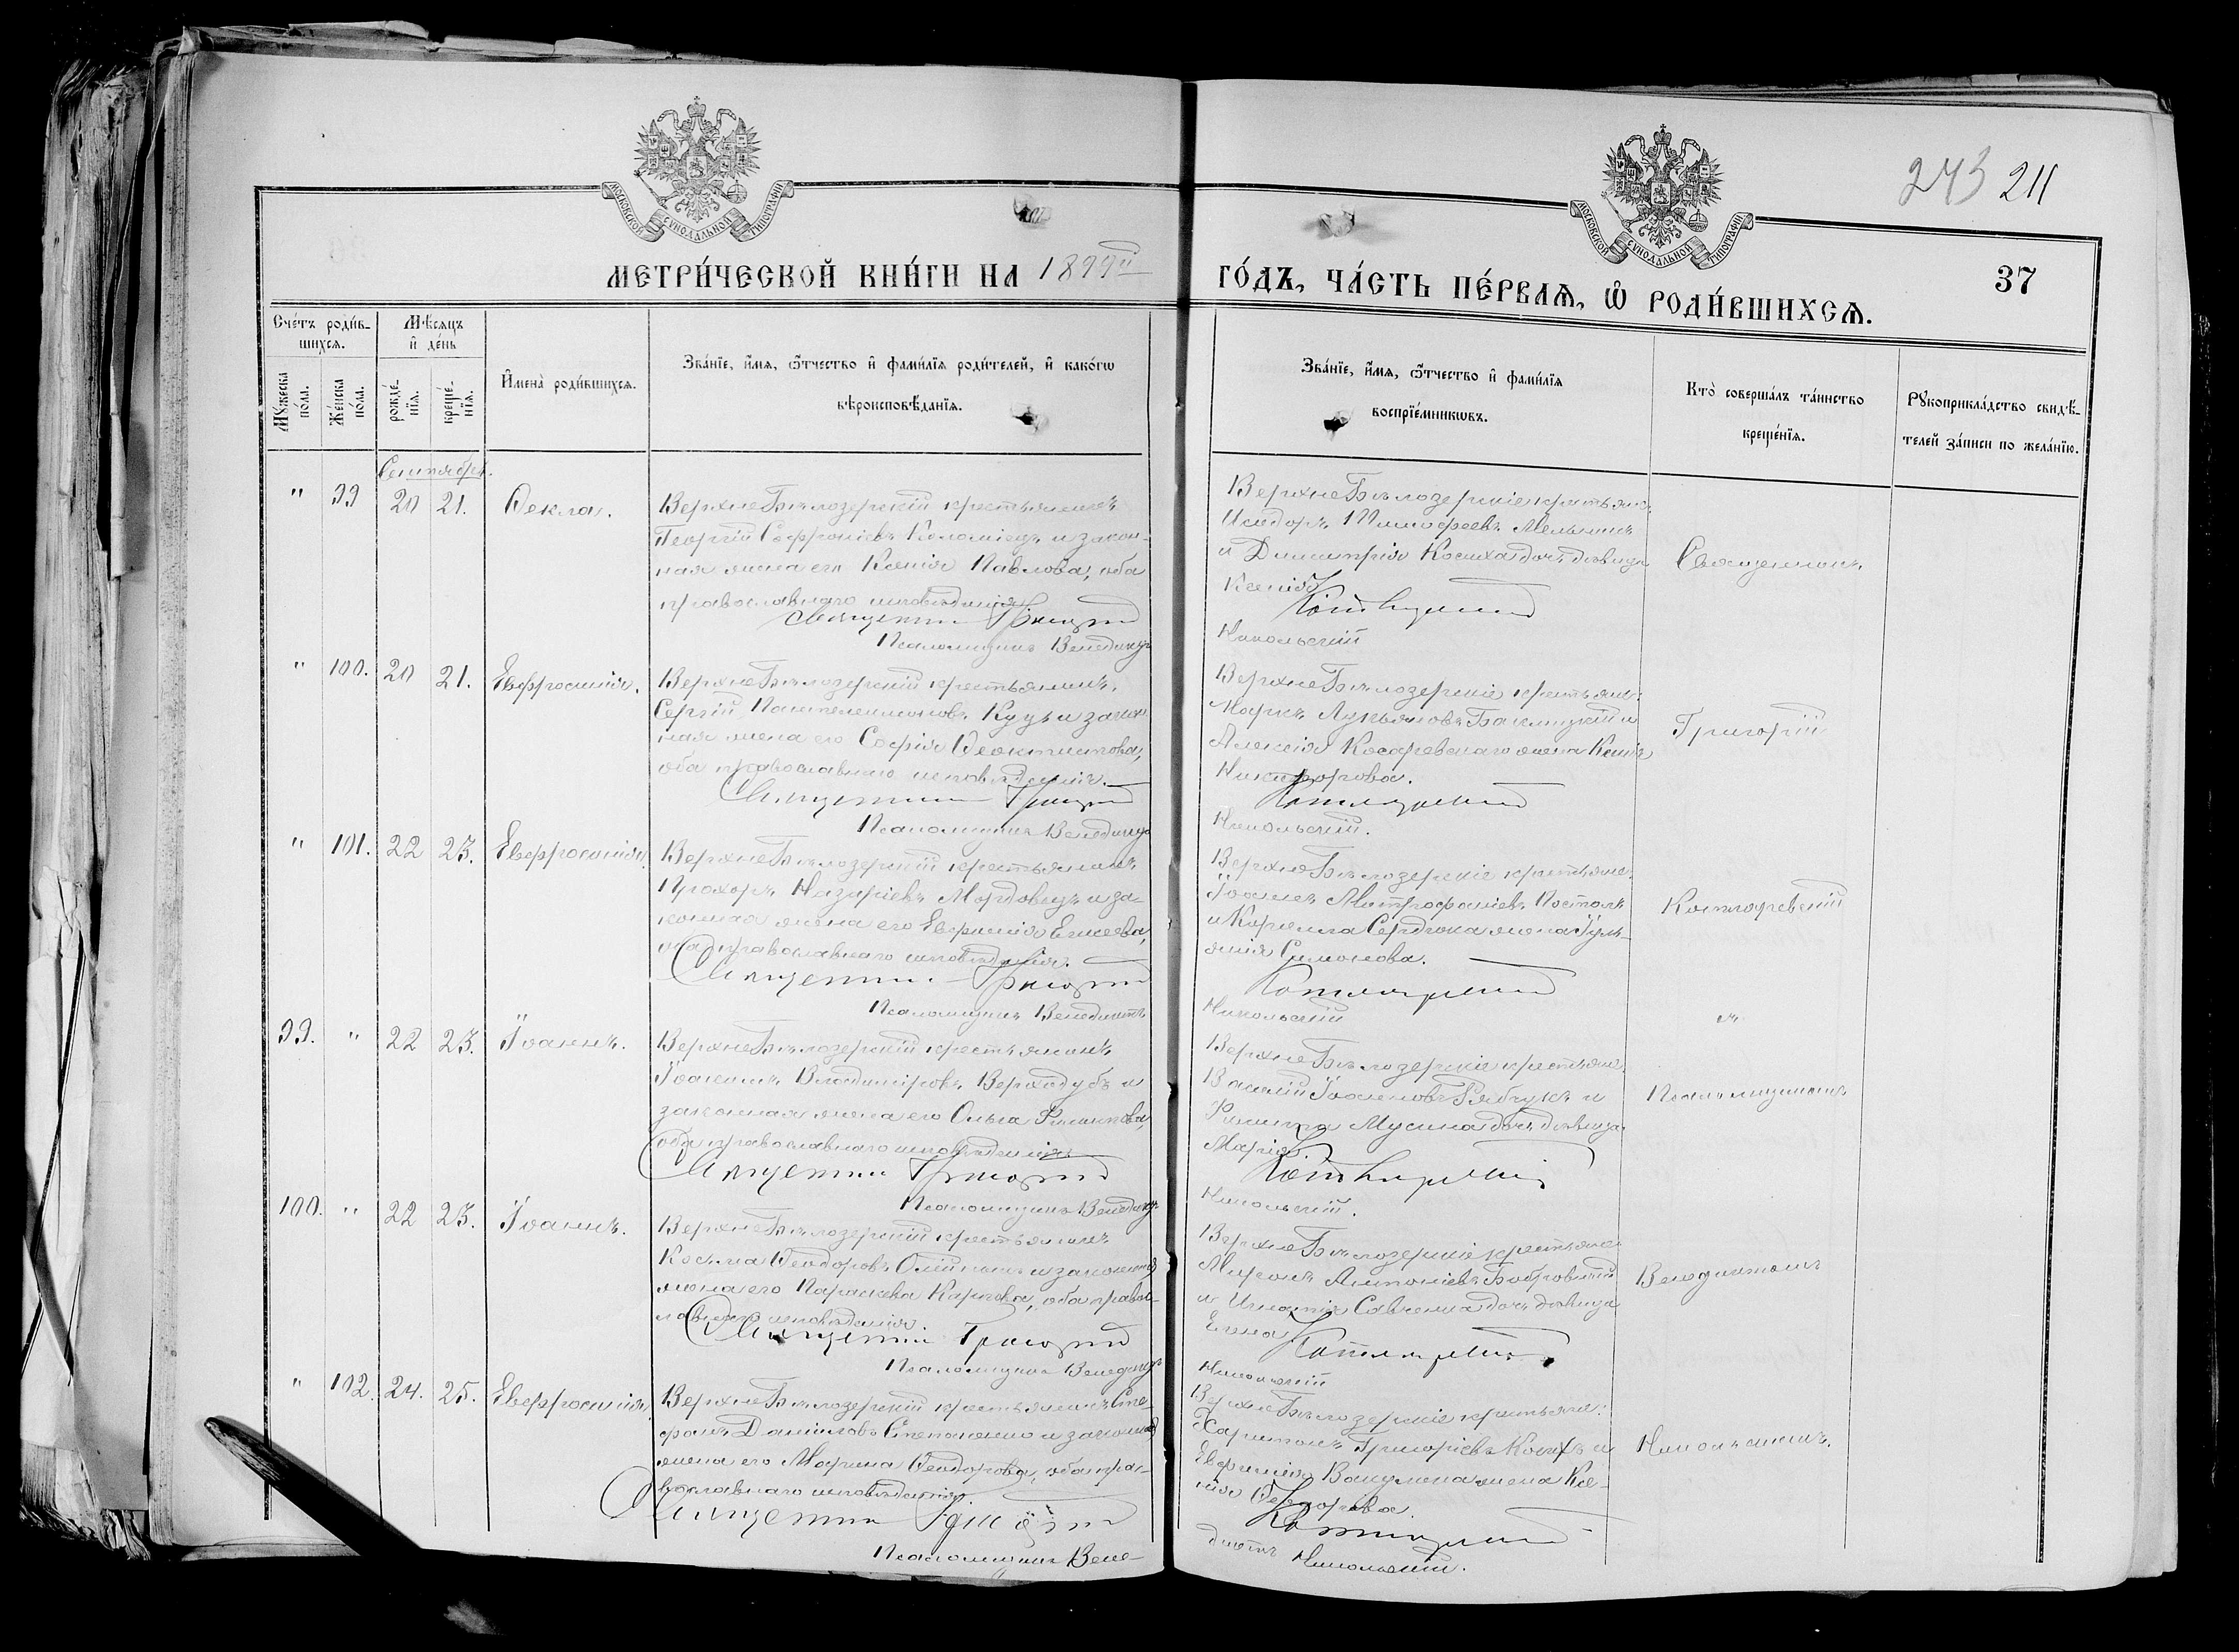 243 211
МОСКОВСКОЙ СУНОДАЛЬНОЙ ТИПОГРАФІИ
МОСКОВСКОЙ СУНОДАЛЬНОЙ ТИПОГРАФІИ
МЕТРИ́ЧЕСКОЙ КНИ́ГИ НА 1899й
ГО́ДЪ, ЧА́СТЬ ПЕ́РВАѦ, Ѡ РОДИ́ВШИХСѦ.
37
Сче́тъ роди́в-
шихсѧ.
Мѣ́сѧцъ
и҆ де́нь
Мꙋ́жеска
по́ла.
Же́нска
по́ла.
рожде́-
нїѧ.
креще́-
нїѧ.
И҆мена̀ роди́вшихсѧ.
Зва́нїе, и҆́мѧ, ѻ҆́тчество и҆ фами́лїѧ роди́телей, и҆ како́гѡ
вѣроисповѣ́данїѧ.
Зва́нїе, и҆́мѧ, ѻ҆́тчество и҆ фами́лїѧ
воспрїе́мникѡвъ.
Кто̀ соверша́лъ та́инство
креще́нїѧ.
Рꙋкоприкла́дство свидѣ́-
телей за́писи по жела́нїю.
Сентябрь.
" 99 20 21. Ѳекла.
ВерхнеБѣлозерскій крестьянинъ
Георгій Софроніевъ Коломіецъ и закон-
ная жена его Ксенія Павлова, оба
православнаго исповѣданія.
Священникъ Григорій
Псаломщикъ Венедиктъ
ВерхнеБѣлозерскіе крестьяне:
Исидоръ Тимофеевъ Мельникъ
и Димитрія Косиха дочь дѣвица
Ксенія.
Котляревскій
Никольскій
Священникъ
" 100. 20 21. Евфросинія.
ВерхнеБѣлозерскій крестьянинъ
Сергій Пантелеимоновъ Куцъ и закон
ная жена его Софія Ѳеоктистова,
оба православнаго исповѣданія.
Священникъ Григорій
Псаломщикъ Венедиктъ
ВерхнеБѣлозерскіе крестьяне:
Маркъ Лукьяновъ Баклицкій и
Алексія Косаревскаго жена Ксенія
Никифорова.
Котляревскій
Никольскій.
Григорій
" 101. 22 23. Евфросинія
ВерхнеБѣлозерскій крестьянинъ
Прохоръ Назаріевъ Мордовецъ и за-
конная жена его Евфимія Елисеева,
оба православнаго исповѣданія.
Священникъ Григорій
Псаломщикъ Венедиктъ
ВерхнеБѣлозерскіе крестьяне:
Іоаннъ Митрофаніевъ Постолъ
и Корнилія Сердюка жена Іуль-
янія Симонова.
Котляревскій
Никольскій
Котляревскій
99. " 22 23. Іоаннъ.
ВерхнеБѣлозерскій крестьянинъ
Іоакимъ Владиміровъ Верходубъ и
законная жена его Ольга Филиппова,
оба православнаго исповѣданія
Священникъ Григорій
Псаломщикъ Венедиктъ
ВерхнеБѣлозерскіе крестьяне:
Василій Іоанновъ Рябчукъ и
Филиппа Мусина дочь дѣвица
Марія.
Котляревскій
Никольскій.
съ
Псаломщикомъ
100. " 22 23. Іоаннъ.
ВерхнеБѣлозерскій крестьянинъ
Косьма Ѳеодоровъ Олійникъ и законная
жена его Параскева Карпова, оба право-
славнаго исповѣданія.
Священникъ Григорій
Псаломщикъ Венедиктъ
ВерхнеБѣлозерскіе крестьяне:
Миронъ Антоніевъ Бобровскій
и Игнатія Савченка дочь дѣвица
Елена.
Котляревскій
Никольскій
Венедиктомъ
" 102. 24. 25. Евфросинія
ВерхнеБѣлозерскій крестьянинъ Сте-
фанъ Даніиловъ Степаненко и законная
жена его Марина Ѳеодорова, оба пра-
вославнаго исповѣданія.
Священникъ Григорій
Псаломщикъ Вене-
ВерхнеБѣлозерскіе крестьяне:
Харитонъ Григоріевъ Косихъ и
Евфимія Вакуленка жена Ксе-
нія Ѳеодорова.
Котляревскій
диктъ Никольскій.
Никольскимъ.